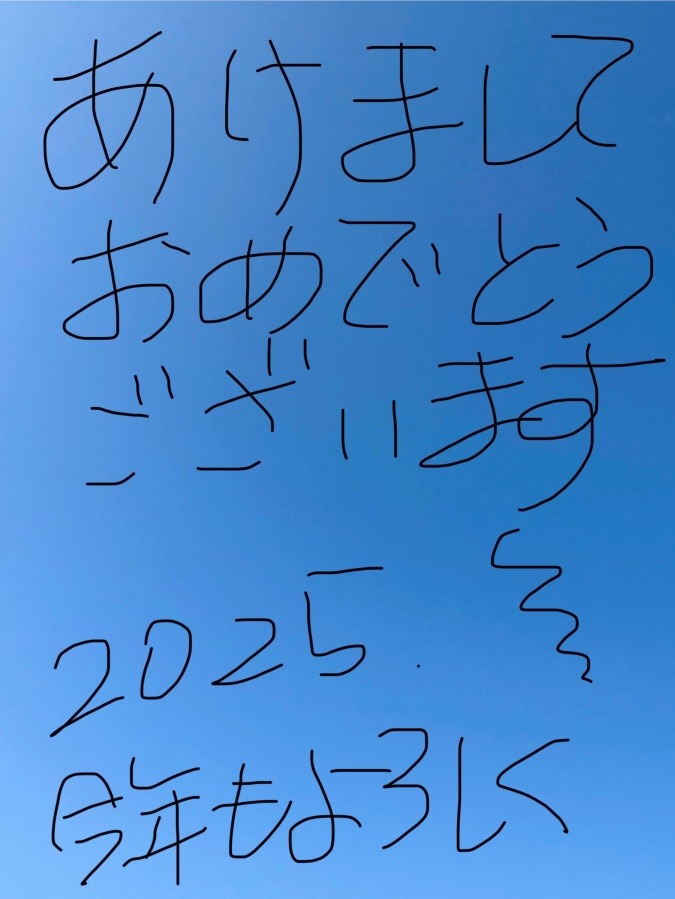 あけまして
おめでとう
ございます
2025.
今年もよろしく